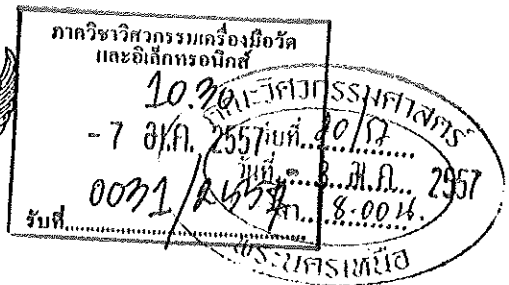 ภาควิชาวิศวกรรมเครื่องมือวัด
และอิเล็กทรอนิกส์
10.30
- 7 มี.ค. 2557
0031/2557
รับที่
คณะวิศวกรรมศาสตร์
รับที่
วันที่ - 3 มี.ค. 2557
8:00 น.
พระนครเหนือ